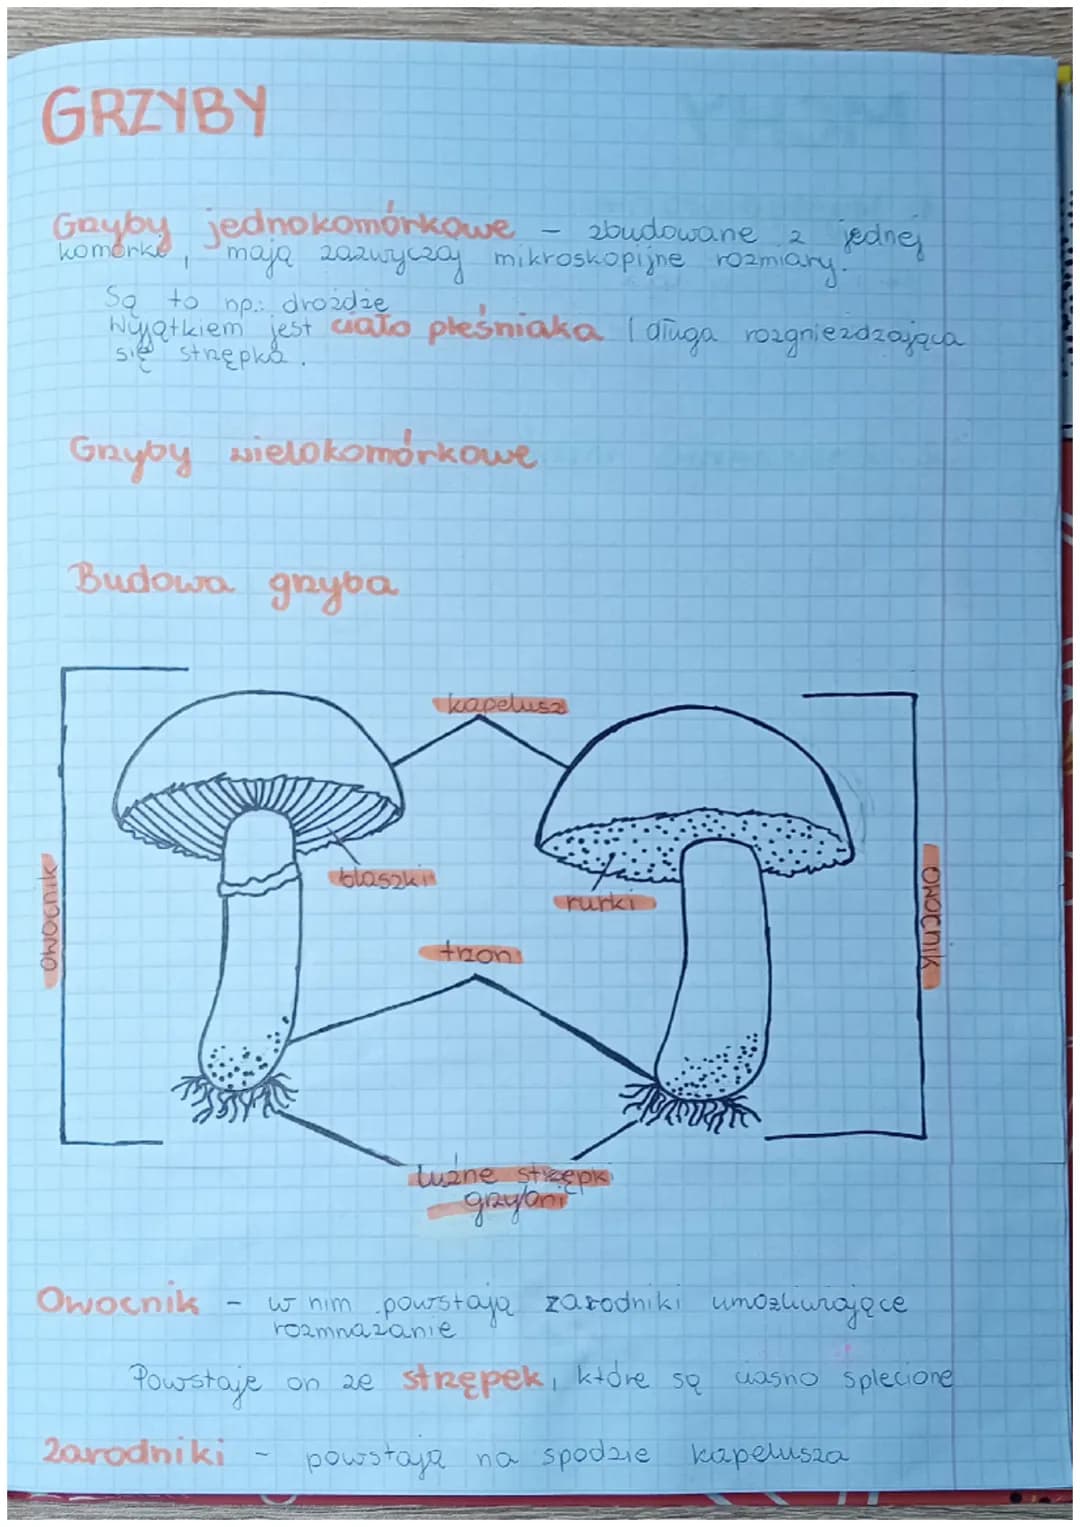 GRZYBY
Grzyby jednokomórkowe - zbudowane z jednej
komórki, mają zazwyczaj mikroskopijne rozmiary.
Są to np.: drożdże
Wyjątkiem jest ciało pleśniaka | długa rozgnieżdżająca
się strzępka.
Grzyby wielokomórkowe
Budowa grzyba
kapelusz
blaszki
rurki
owocnik
owocnik
trzon
luźne strzępki
grzybni
Owocnik - w nim powstają zarodniki umożliwiające
rozmnażanie
Powstaje on ze strzępek, które są ciasno splecione
Zarodniki - powstają na spodzie kapelusza